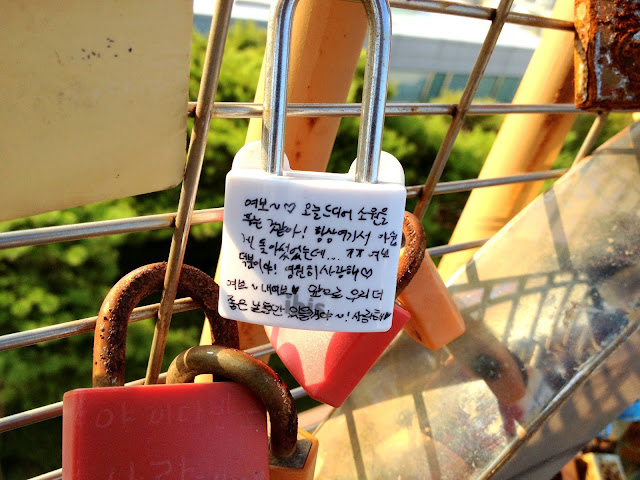 여보~♡ 오늘 드디어 소원을
푸는 것 같아! 항상 여기서 아쉽
게 돌아섰었는데... ㅠㅠ 여보
덕분이야! 영원히 사랑해♡
여보~ 내여보♥ 앞으로 우리 더
좋은 날들만 있을거야~! 사랑해♥
ibis
사랑